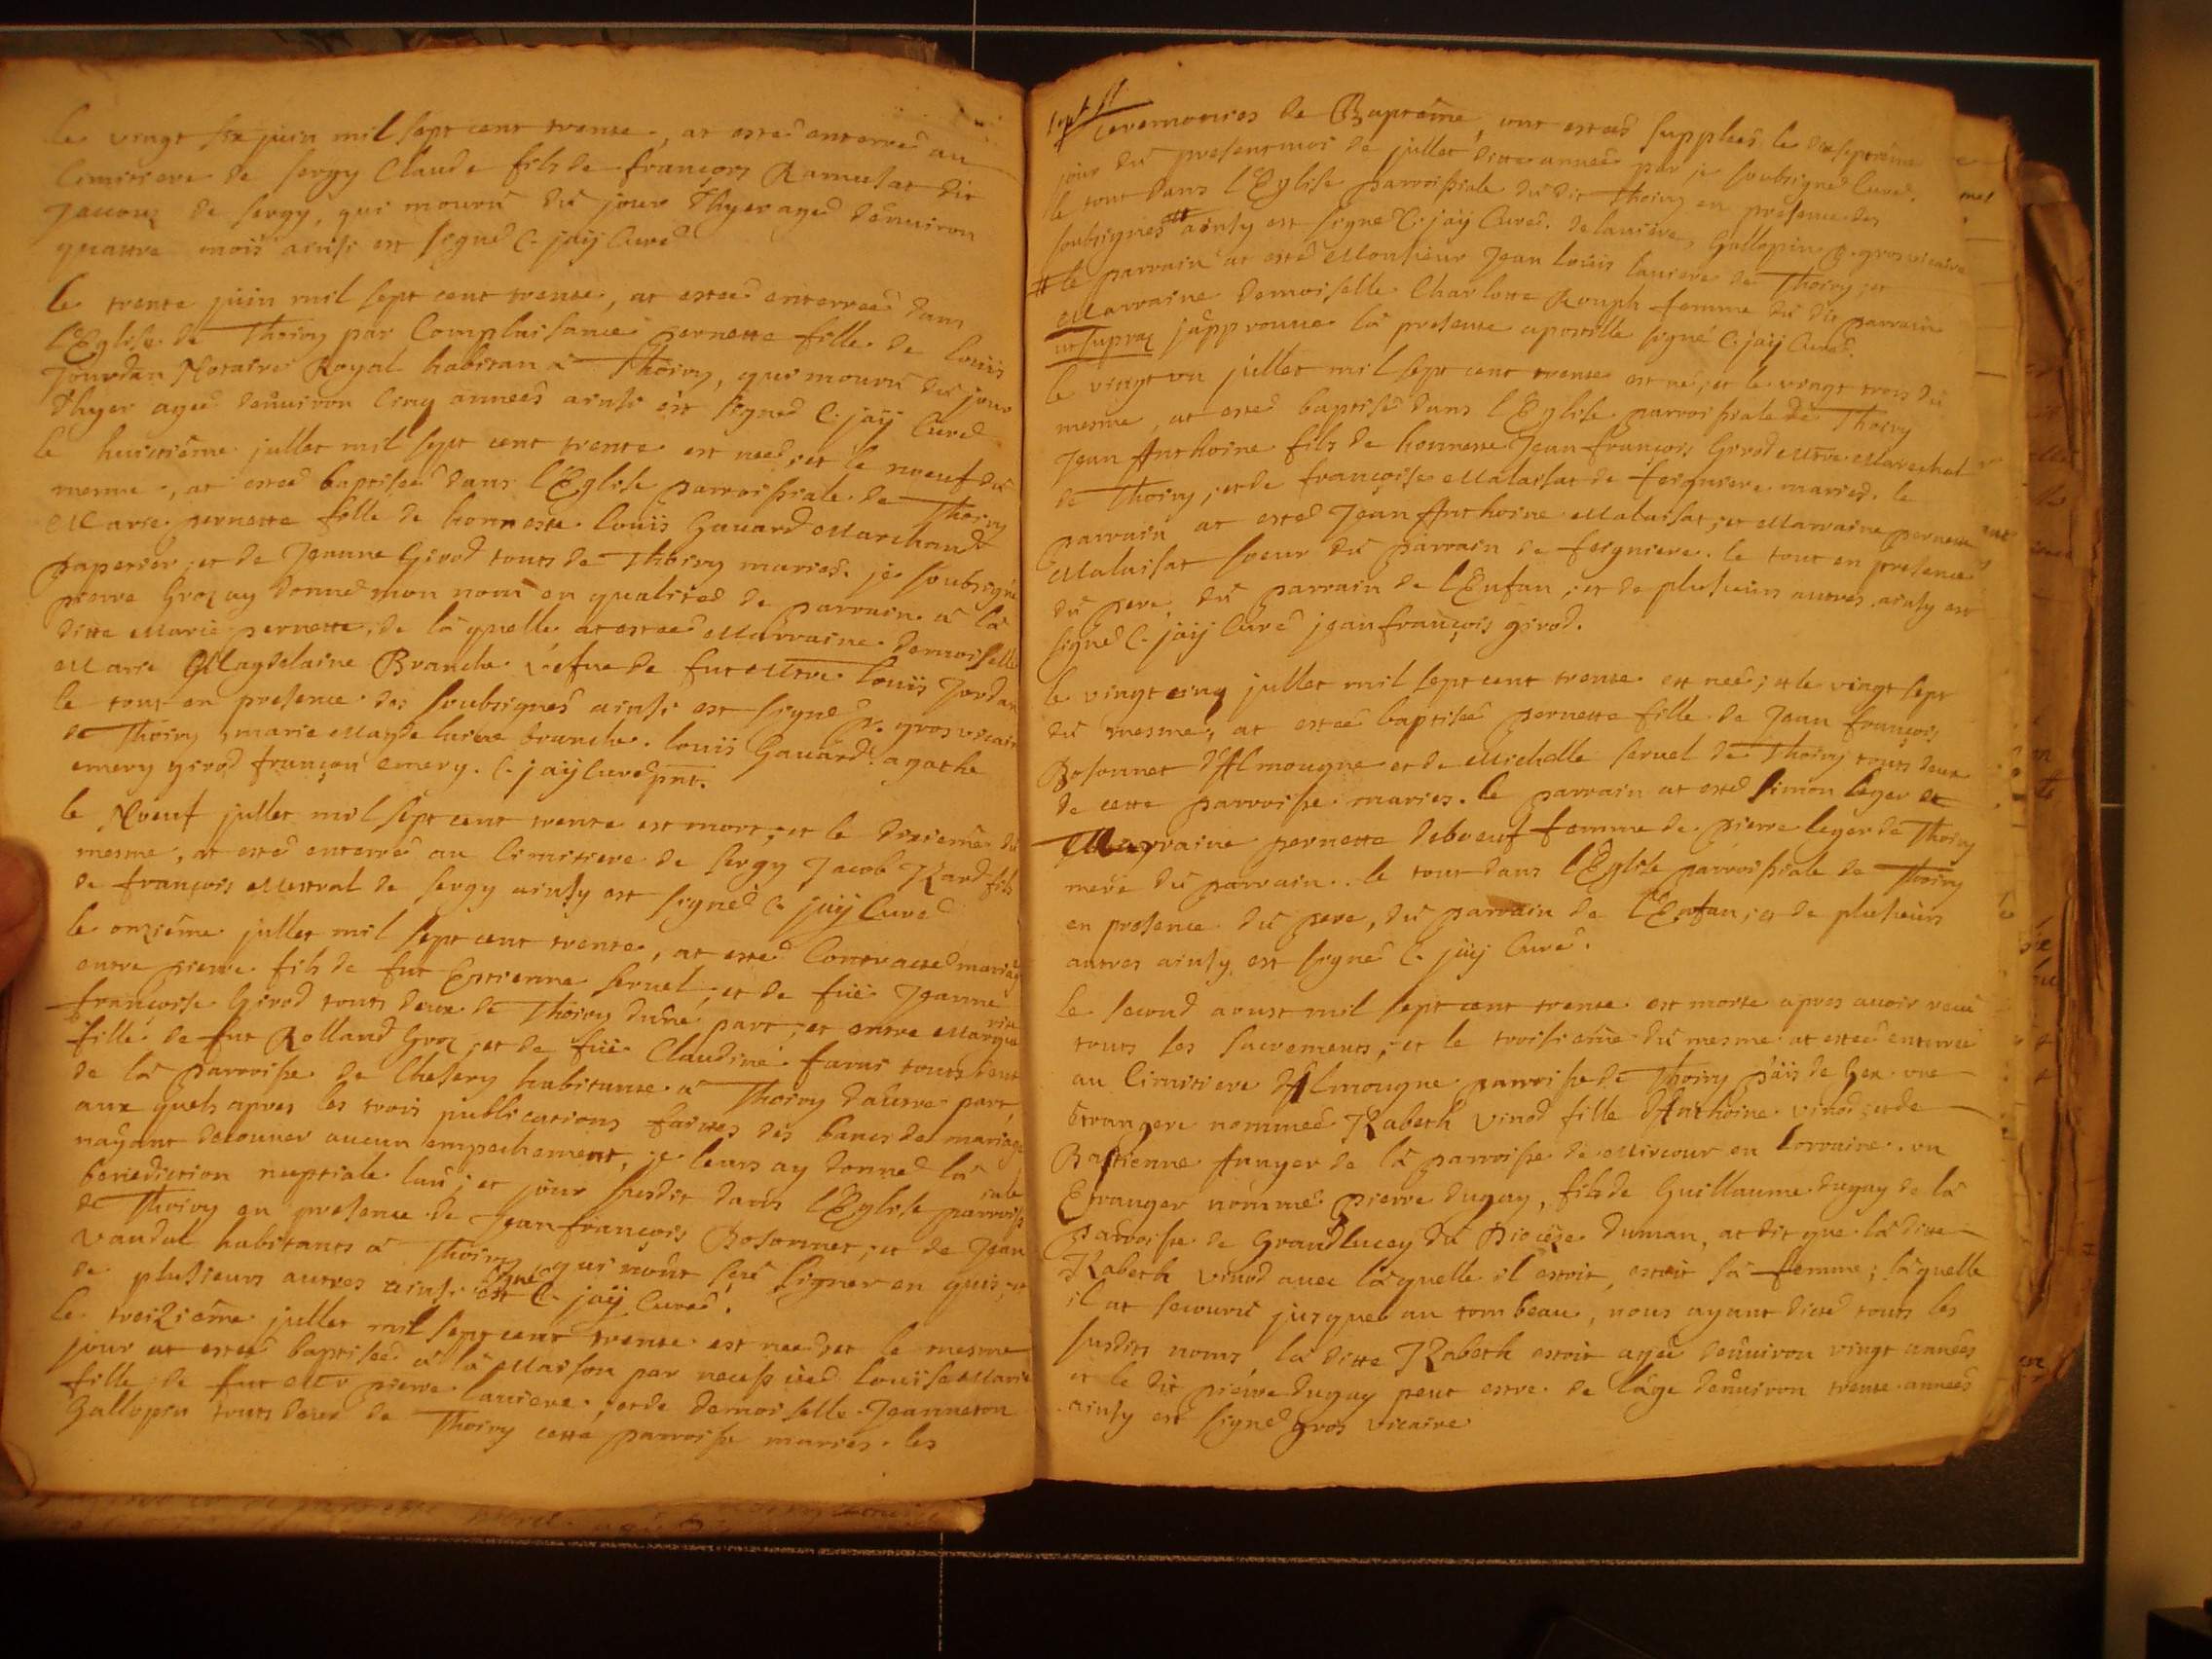 le vingt six juin mil sept cent trente, at esté enterré au
Cimitiere de sergy Claude fils de françois Ramusat dit
Jacouz de sergy, qui mourû du jour d'hyer agé d'environ
quattre mois ainsi est signé C. jaÿ Curé
le trente juin mil sept cent trente, at esteé enterreé dans
l'Eglise de Thoiry par Complaisance pernette fille de Louïs
Jourdan Notaire Royal habitan à Thoiry, qui mourû du jour
d'hyer ageé d'environ Cinq anneés ainsi est signé C. jaÿ Curé
le huittiême juillet mil sept cent trente est neé; et le noeuf du
mesme, at esteé baptiseé dans l'Eglise parroissiale de Thoiry
Marie pernette fille de honneste louïs Gavard Marchand
papetier; et de Jeanne Girod touts de Thoiry mariés. je soubsigné
pierre Groz ay donné mon nom en qualité de parrain à la
ditte Marie pernette, de la quelle at esteé Marraine demoiselle
Marie Magdelaine Branche vefue de fut Mtre louïs Jordan
le tout en presence des soubsignés ainsi est signé p. gros vicair
de Thoiry, marie Magdelaine branche. louïs Gavard. agathe
emery girod françois emery. C. jaÿ Curé pnt.
le Noeuf juillet mil sept cent trente est mort; et le dixiême du
mesme, at esté enterré au Cimitiere de sergy Jacob Izard fils
de françois Mestral de sergy ainsy est signé C. jaÿ Curé
le onziême juillet mil sept cent trente, at esté Contracté mariag
entre pierre fils de fut Estienne seruel; et de füe Jeanne
françoise Girod touts deux de Thoiry d'une part; et entre Margue
rite
fille de fut Rolland Groz; et de füe Claudine famy touts deux
de la parroisse de Chesery habitante à Thoiry d'autre part,
aux quels apres les trois publications faittes des bancs de mariage
nayant decouuer aucun empechement, je leurs ay donné la
benediction nuptiale lan; et jour susdit dans l'Eglise parroiss
iale
de Thoiry en presence de Jean françois Bosonnet; et de Jean
Vaudal habitants à Thoiry qui n'ont sçeu signer en quis; et
de plusieurs autres ainsi est signé C. jaÿ Curé.
le treiziême juillet mil sept cent trente est neé; et le mesme
jour at esteé baptiseé à la Maison par necessiteé louïse Marie
fille de fut Mr pierre laniere; et de demoiselle Jeanneton
Gallopin touts deux de Thoiry cette parroisse mariés. les
ceremonies de Baptême, ont estees suppleés le dixseptiême
jour du present mois de juillet ditte anneé par je soubsigné Curé.
le tout dans l'Eglise parroissiale du dit Thoiry en presence des
soubsignés # ainsy est signé C. jaÿ Curé. Delaniere, Gallopin p. gros vicaire
# le parrain at esté Monsieur Jean louïs laniere de Thoiry; et
Marraine demoiselle Charlotte Rouph femme du dit parrain
ut supra; j'approuue la presente apostille signé C. jaÿ Curé.
le vingt un juillet mil sept cent trente est né; et le vingt trois du
mesme, at esté baptisé dans l'Eglise parroissiale de Thoiry
Jean Anthoine fils de honneste Jean françois Girod Mtre Marechal
de Thoiry; et de françoise Malaisat de feigniere mariés. le
parrain at esté Jean Anthoine Malaisat; et Marraine pernette
Malaisat soeur du parrain de feigniere. le tout en presence
du pere, du parrain de l'Enfan; et de plusieurs autres ainsy est
signé C. jaÿ Curé jean françois girod.
le vingt cinq juillet mil sept cent trente est neé; et le vingt sept
du mesme, at esteé baptiseé pernette fille de Jean françois
Bosonnet d'Almougne et de Michelle seruel de Thoiry touts deux
de cette parroisse mariés. le parrain at esté simon leger et
Marraine pernette deboeuf femme de pierre leger de Thoiry
mere du parrain. le tout dans l'Eglise parroissiale de Thoiry
en presence du pere, du parrain de l'Enfan; et de plusieurs
autres ainsy est signé C. jaÿ Curé.
le second aoust mil sept cent trente est morte apres auoir receu
touts les sacrements; et le troisiême du mesme at esteé enterreé
au Cimitiere d'Almougne parroisse de Thoiry païs de Gex vne
étrangere nommeé Izabeth vinod fille d'Anthoine vinod; et de
Bastienne de la parroisse de Mircour en lorraine. un
Etranger nommé pierre dugay, fils de Guillaume dugay de la
parroisse de Grandlucey du Diocèze duman, at dit que la ditte
Izabeth vinod auec la quelle il estoit, estoit sa femme; la quelle
il at secouru jusques au tombeau, nous ayant dicté touts les
susdits noms, la ditte Izabeth estoit ageé d'environ vingt anneés
et le dit pierre dugay peut estre de l'âge d'environ trente anneés
ainsy est signé gros vicaire